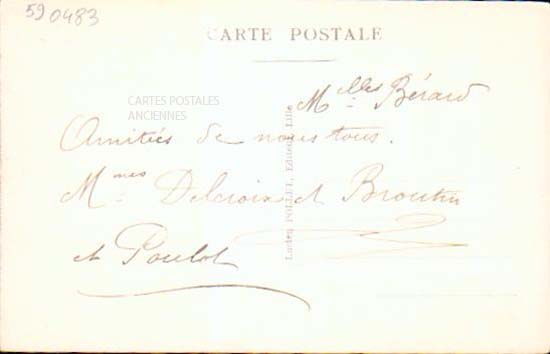 59 0483
CARTE POSTALE
Mlles Bérard
CARTES POSTALES
ANCIENNES
Amitiés de nous tous.
Mmes Delcroix et Broutin
et Poulot
Lucien POLLET, Editeur, Lille